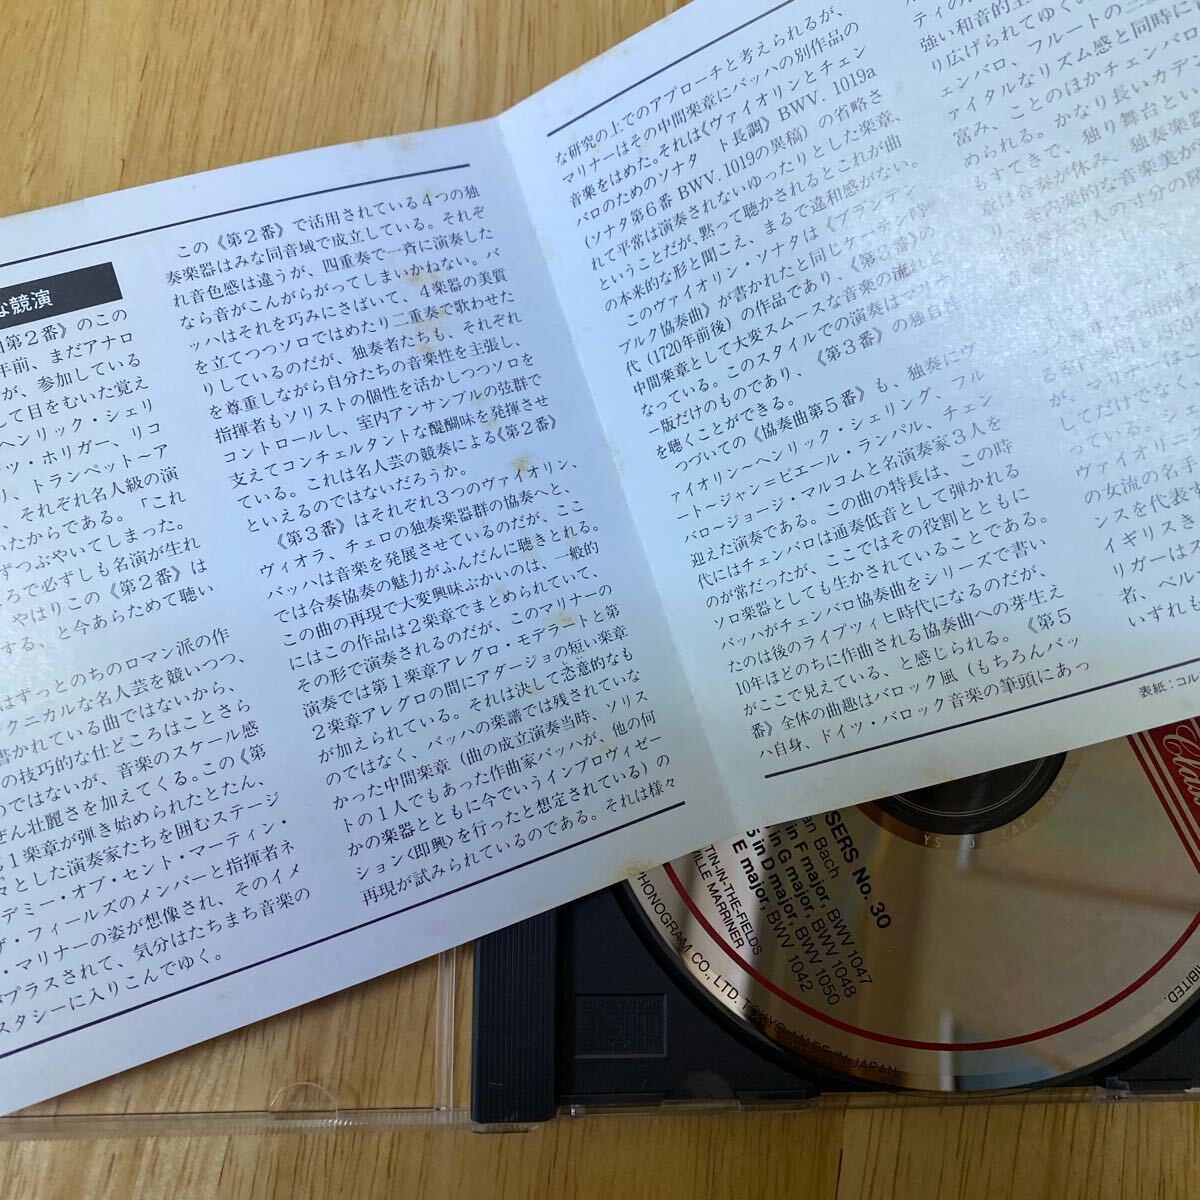 な競演
第2番》のこの
年前、まだアナロ
が、参加している
て目をむいた覚え
ヘンリック・シェリ
ツ・ホリガー、リコ
リ、トランペット〜ア
、それぞれ名人級の演
いたからである。「これ
ずつぶやいてしまった。
ろで必ずしも名演が生れ
、やはりこの《第2番》は
する、と今あらためて聴い
はずっとのちのロマン派の作
クニカルな名人芸を競いつつ、
書かれている曲ではないから、
の技巧的な仕どころはことさら
のではないが、音楽のスケール感
ぜん壮麗さを加えてくる。この《第
第1楽章が弾き始められたとたん、
々とした演奏家たちを囲むステージ
デミー・オブ・セント・マーティン・
ザ・フィールズのメンバーと指揮者ネ
・マリナーの姿が想像され、そのイメ
がプラスされて、気分はたちまち音楽の
スタシーに入りこんでゆく。
この《第2番》で活用されている4つの独
奏楽器はみな同音域で成立している。それぞ
れ音色感は違うが、四重奏で一斉に演奏した
なら音がこんがらがってしまいかねない。バ
ッハはそれを巧みにさばいて、4楽器の美質
を立てつつソロではめたり二重奏で歌わせた
りしているのだが、独奏者たちも、それぞれ
を尊重しながら自分たちの音楽性を主張し、
指揮者もソリストの個性を活かしつつソロを
コントロールし、室内アンサンブルの弦群で
支えてコンチェルタントな醍醐味を発揮させ
ている。これは名人芸の競奏による《第2番》
といえるのではないだろうか。
《第3番》はそれぞれ3つのヴァイオリン、
ヴィオラ、チェロの独奏楽器群の協奏へと、
バッハは音楽を発展させているのだが、ここ
では合奏協奏の魅力がふんだんに聴きとれる。
この曲の再現で大変興味ぶかいのは、一般的
にはこの作品は2楽章でまとめられていて、
その形で演奏されるのだが、このマリナーの
演奏では第1楽章アレグロ・モデラートと第
2楽章アレグロの間にアダージョの短い楽章
が加えられている。それは決して恣意的なも
のではなく、バッハの楽譜では残されていな
かった中間楽章（曲の成立演奏当時、ソリス
トの1人でもあった作曲家バッハが、他の何
かの楽器とともに今でいうインプロヴィゼー
ション〈即興〉を行ったと想定されている）の
再現が試みられているのである。それは様々
な研究の上でのアプローチと考えられるが、
マリナーはその中間楽章にバッハの別作品の
音楽をはめた。それは《ヴァイオリンとチェン
バロのためのソナタ ト長調》BWV. 1019a
(ソナタ第6番 BWV. 1019の異稿）の省略さ
れて平常は演奏されないゆったりとした楽章、
ということだが、黙って聴かされるとこれが曲
の本来的な形と聞こえ、まるで違和感がない。
このヴァイオリン・ソナタは《ブランデン
ブルク協奏曲》が書かれたと同じケーテン時
代（1720年前後）の作品であり、《第3番》の
中間楽章として大変スムースな音楽の流れと
なっている。このスタイルでの演奏はマリナ
一版だけのものであり、《第3番》の独自性
を聴くことができる。
つづいての《協奏曲第5番》も、独奏にヴ
ァイオリン〜ヘンリック・シェリング、フル
ート〜ジャン=ピエール・ランパル、チェン
バロ〜ジョージ・マルコムと名演奏家3人を
迎えた演奏である。この曲の特長は、この時
代にはチェンバロは通奏低音として弾かれる
のが常だったが、ここではその役割とともに
ソロ楽器としても生かされていることである。
バッハがチェンバロ協奏曲をシリーズで書い
たのは後のライプツィヒ時代になるのだが、
10年ほどのちに作曲される協奏曲への芽生え
がここで見えている、と感じられる。《第5
番》全体の曲趣はバロック風（もちろんバッ
ハ自身、ドイツ・バロック音楽の筆頭にあっ
強い和音的
り広げられてゆく。
ェンバロ、フルートの三
ァイタルなリズム感と同時に
富み、ことのほかチェンバロ
められる。かなり長いカデン
もすてきで、独り舞台とい
章は合奏が休み、独奏楽
室内楽的な音楽美が
人の寸分の隙
が、マリナーはこ
してだけでなく
っている。シェ
ヴァイオリニ
の女流の名手
ンスを代表す
イギリスき
リガーはス
者、ベル
いずれ
表紙：コル
SERS No. 30
an Bach
in F major, BWV 1047
in G major, BWV 1048
5 in D major, BWV 1050
E major, BWV 1042
TIN-IN-THE-FIELDS
VILLE MARRINER
PHONOGRAM CO., LTD. TOKYO MADE IN JAPAN
IBITED.